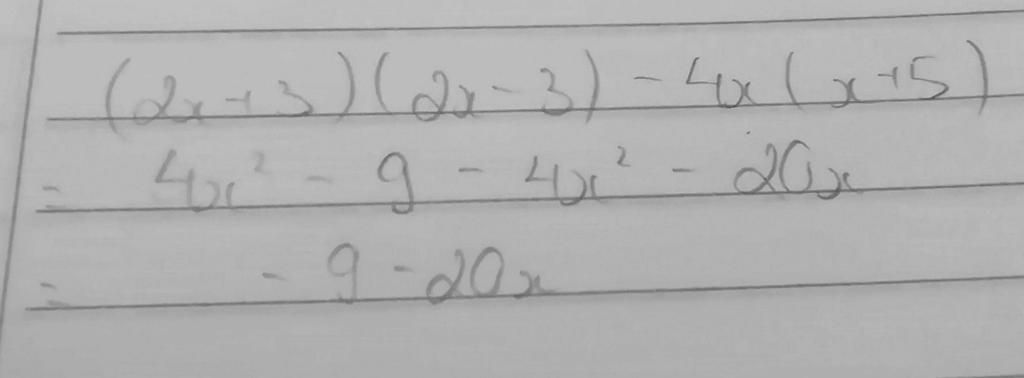 (2x+3)(2x-3) - 4x(x+5)
= 4x² - 9 - 4x² - 20x
= - 9 - 20x